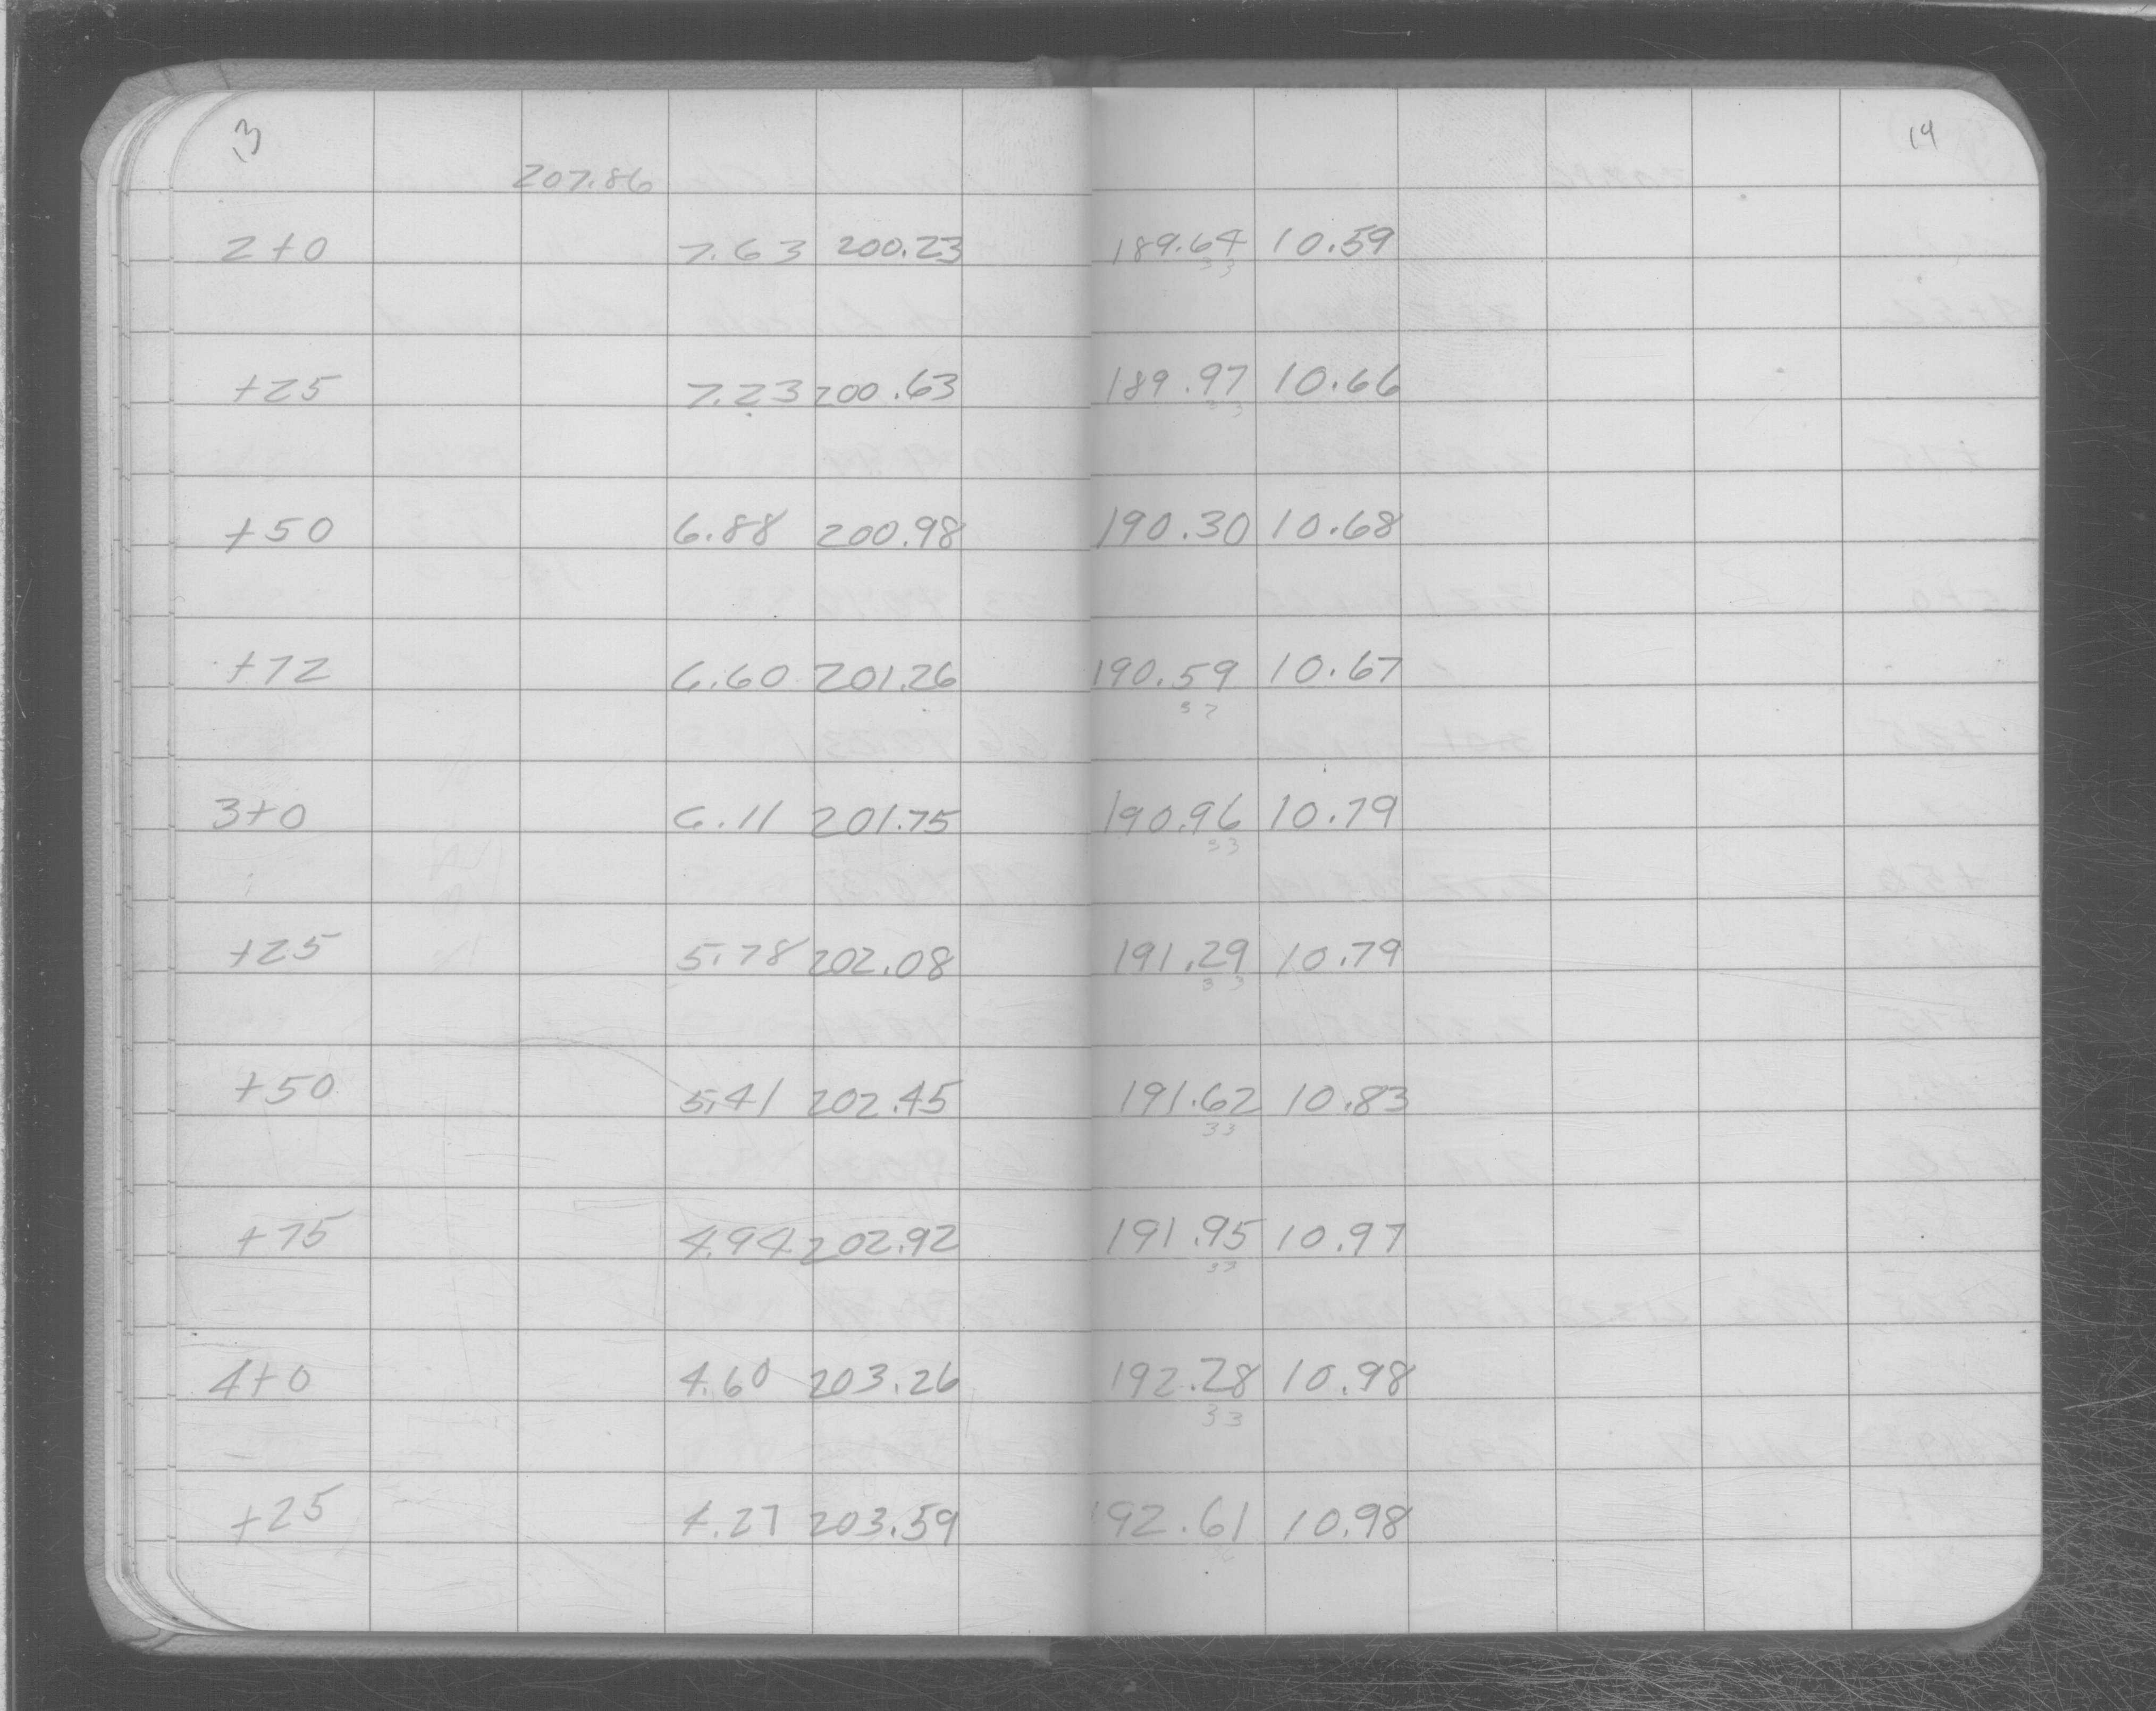 13 14
207.86
2+0 7.63 200.23 189.64 10.59
33
+25 7.23 200.63 189.97 10.66
33
+50 6.88 200.98 190.30 10.68
+72 6.60 201.26 190.59 10.67
37
3+0 6.11 201.75 190.96 10.79
33
+25 5.78 202.08 191.29 10.79
33
+50 5.41 202.45 191.62 10.83
33
+75 4.94 202.92 191.95 10.97
33
4+0 4.60 203.26 192.28 10.98
33
+25 4.27 203.59 192.61 10.98